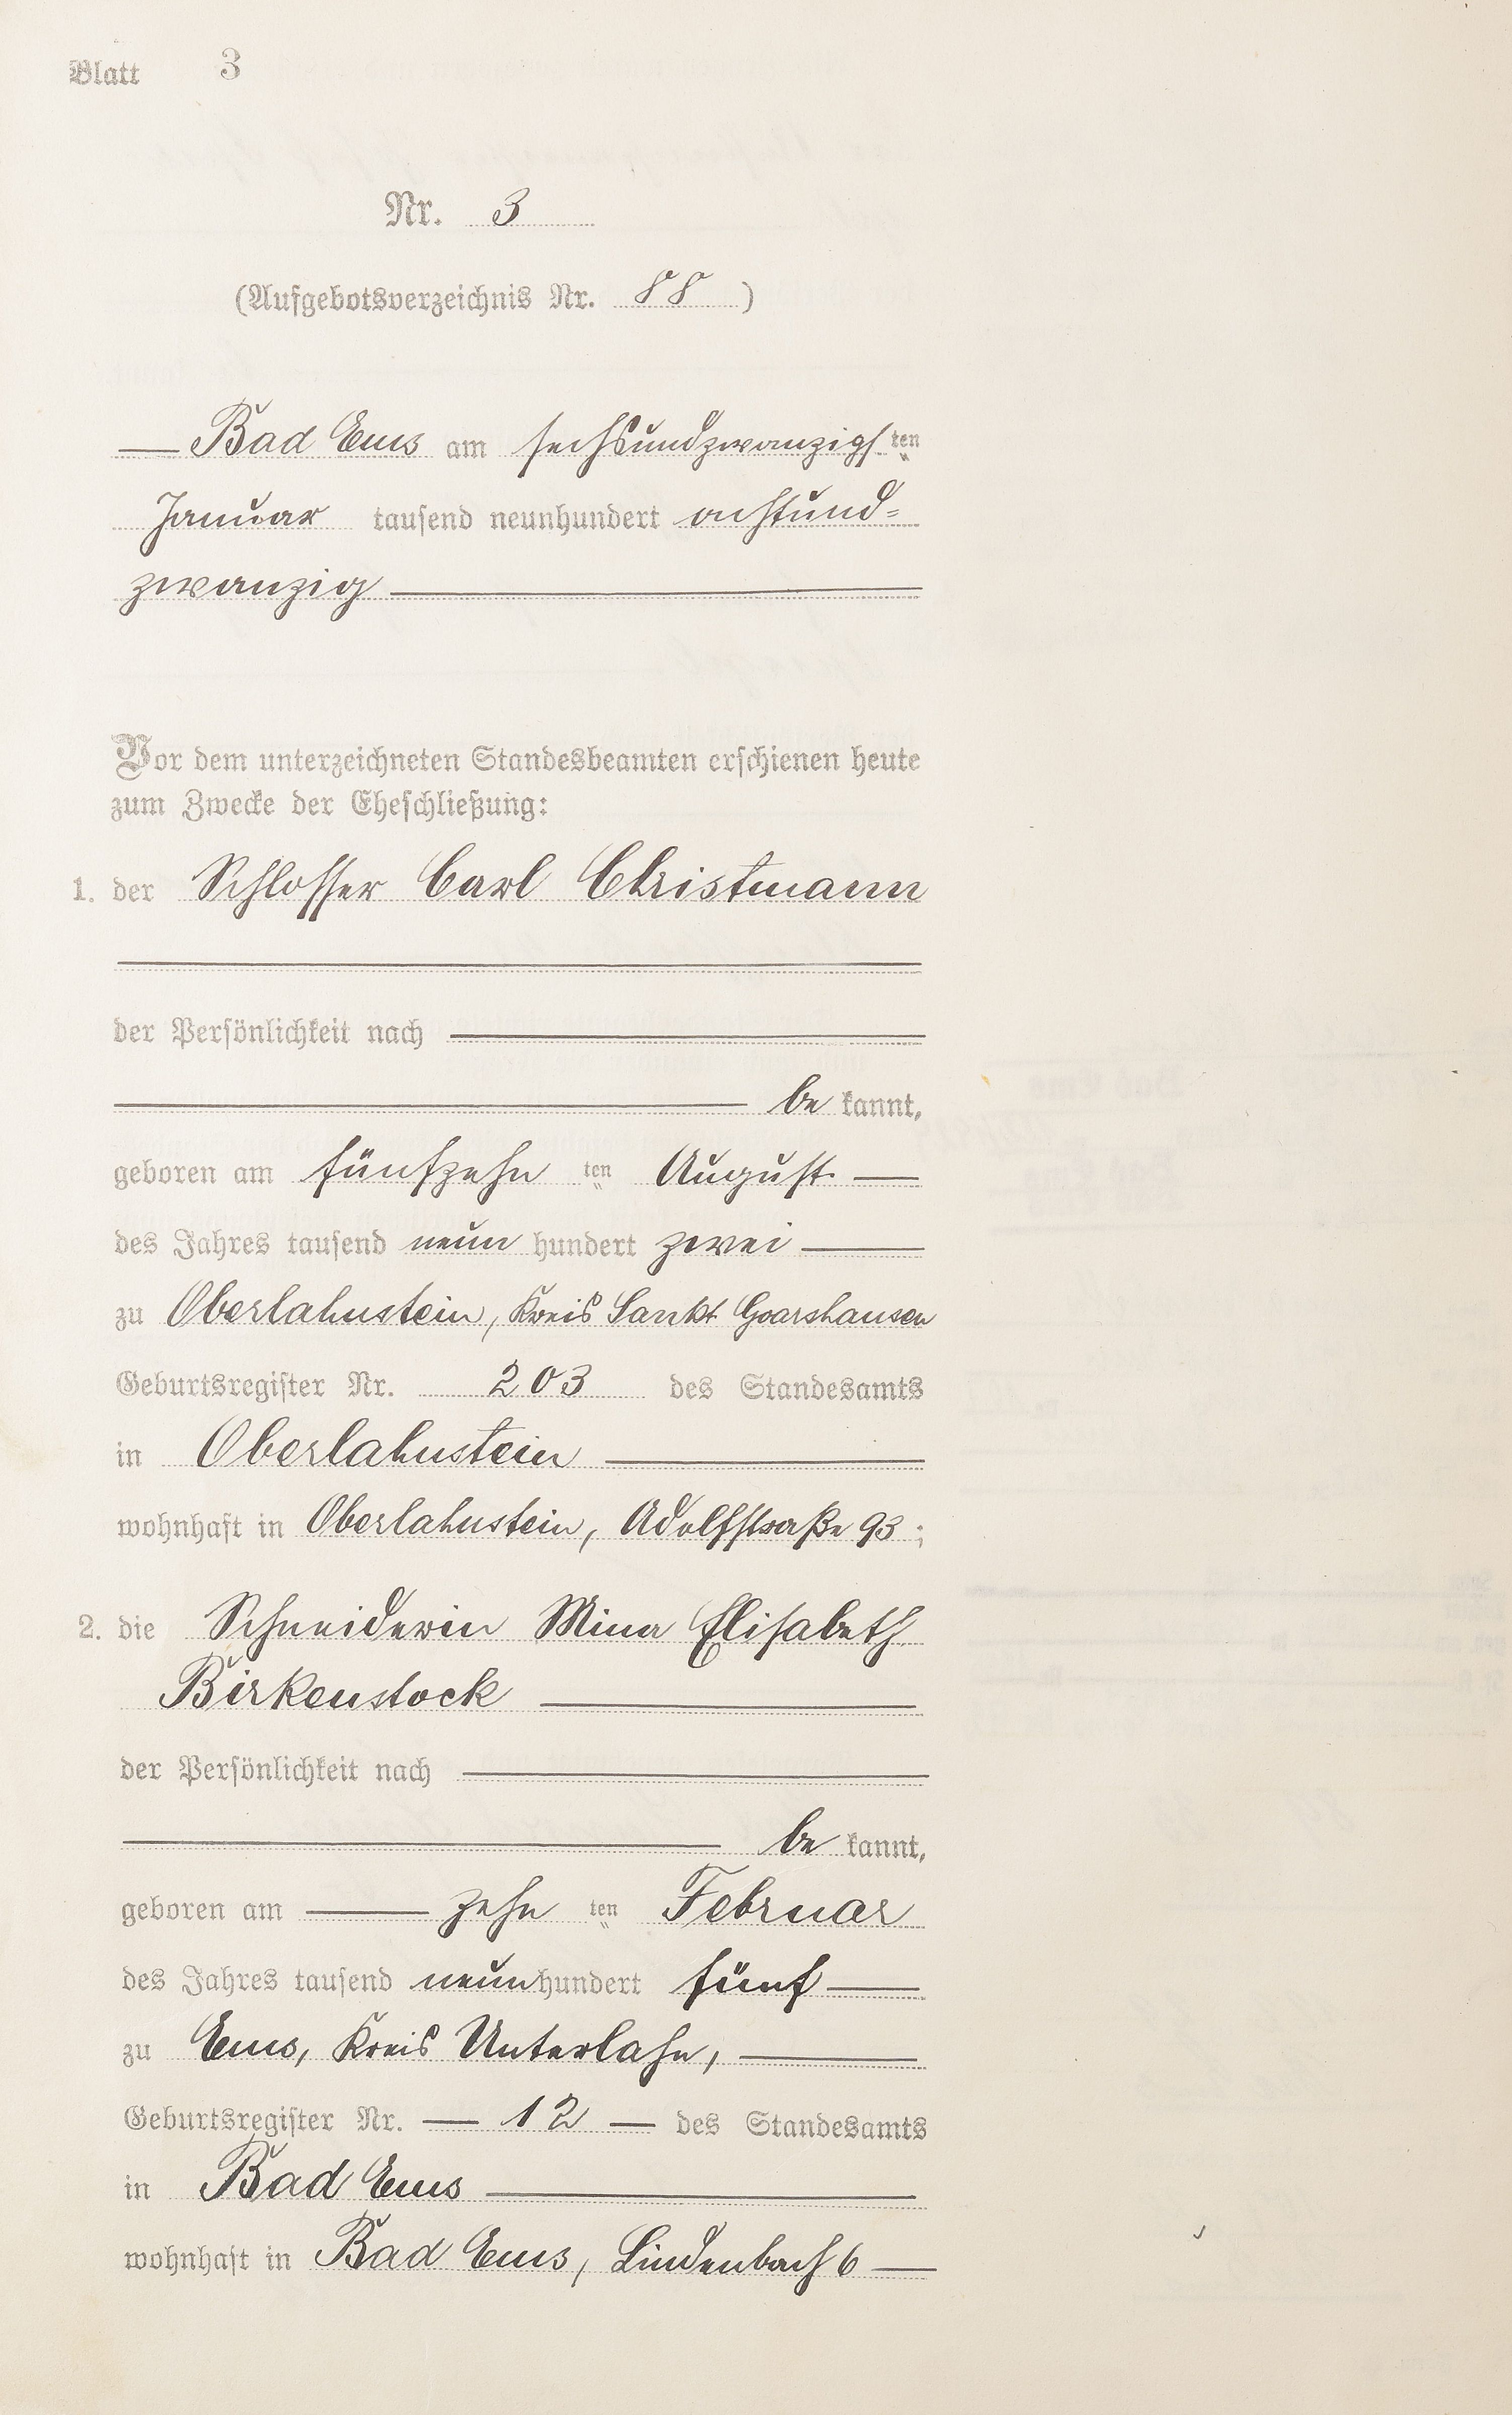 Blatt 3
Nr. 3
(Aufgebotsverzeichnis Nr. 88)
— Bad Ems am sechsundzwanzigsten
Januar tausend neunhundert achtund-
zwanzig —
Vor dem unterzeichneten Standesbeamten erschienen heute
zum Zwecke der Eheschließung:
1. der Schlosser Carl Christmann
—
der Persönlichkeit nach —
— be kannt,
geboren am fünfzehn ten August —
des Jahres tausend neun hundert zwei —
zu Oberlahnstein, Kreis Sankt Goarshausen
Geburtsregister Nr. 203 des Standesamts
in Oberlahnstein —
wohnhaft in Oberlahnstein, Adolfstraße 93 ;
2. die Schneiderin Mina Elisabeth
Birkenstock —
der Persönlichkeit nach —
— be kannt,
geboren am — zehn ten Februar
des Jahres tausend neunhundert fünf —
zu Ems, Kreis Unterlahn, —
Geburtsregister Nr. — 12 — des Standesamts
in Bad Ems —
wohnhaft in Bad Ems, Lindenbach 6 —